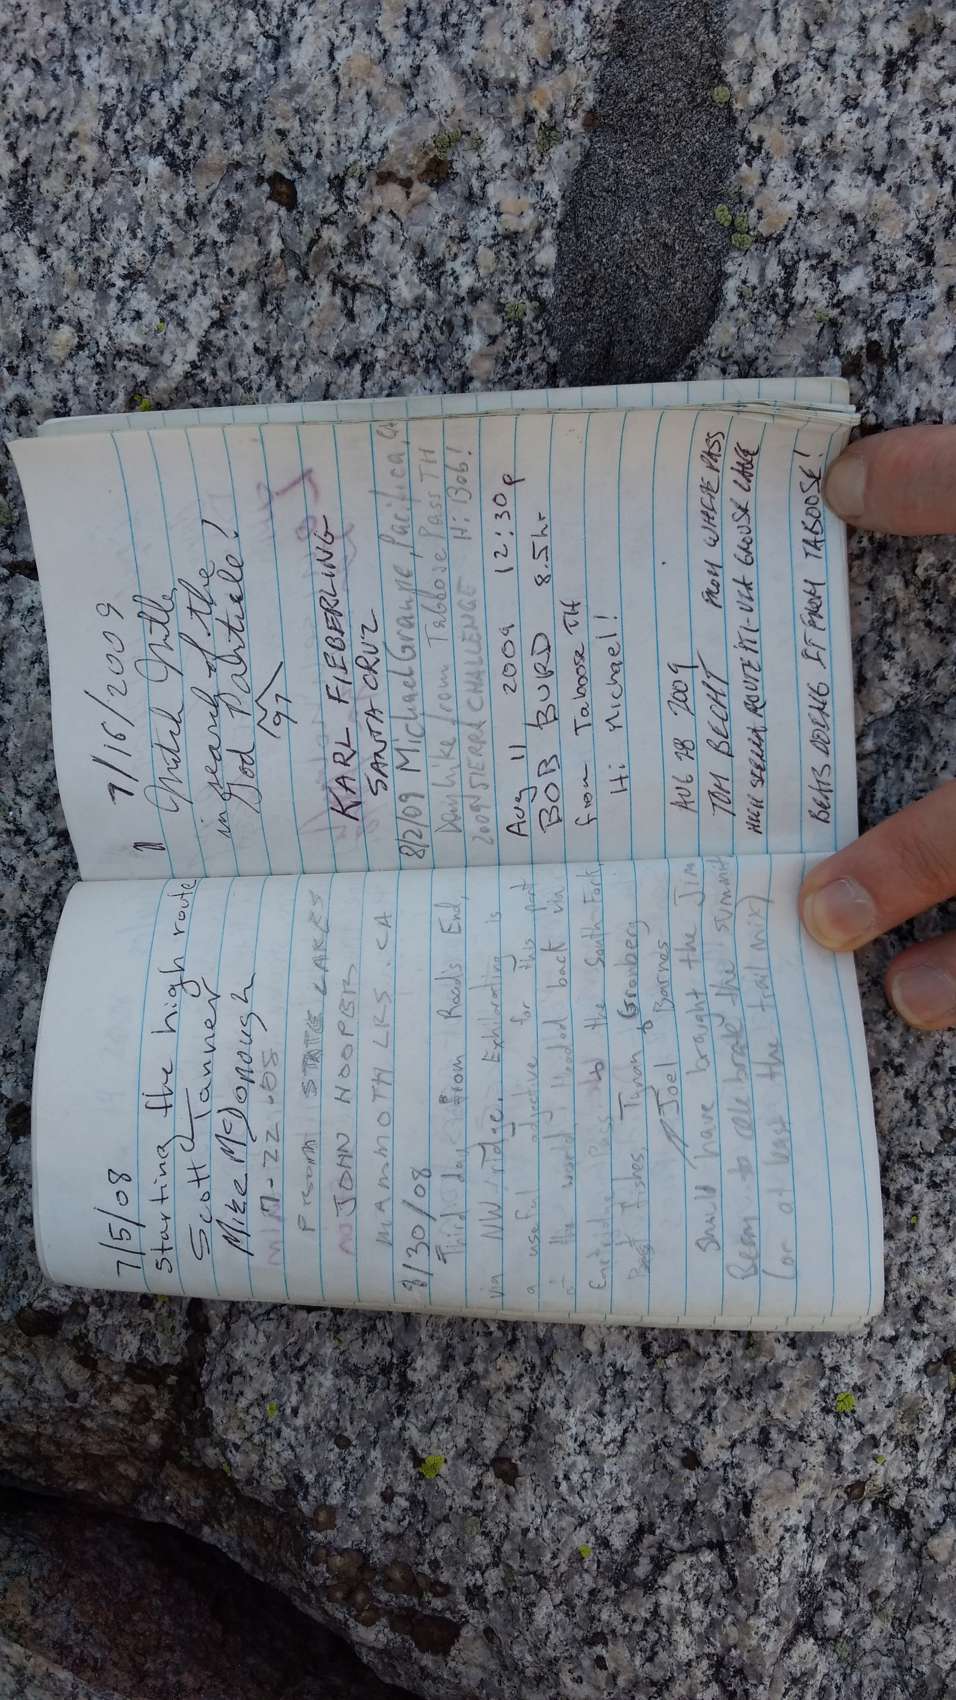 7/5/08
Starting the high route
Scott Tanner
Mike McDonough
LAKES
JOHN HOOPER
MAMMOTH LKS. CA
8/30/08
Third day from Roads End,
via NW ridge. Exhilarating is
a useful adjective for this part
of the world. Headed back via
Pass to the South Fork
Tyrah Granberg
Joel Barnes
Should have brought the Jim
Beam to celebrate the summit
(or at least the trail mix)
7/16/2009
in search of the
God Particle!
KARL FIEBERLING
SANTA CRUZ
8/2/09 Michael Graupe, Pacifica, CA
Dayhike from Taboose Pass TH
2009 SIERRA CHALLENGE Hi Bob!
Aug 11 2009 12:30p
BOB BURD 8.5hr
from Taboose TH
Hi Michael!
AUG 28 2009
TOM BECHT FROM WHITE PASS
HIGH SIERRA ROUTE VIA GROUSE LAKE
BEATS DOING IT FROM TABOOSE!